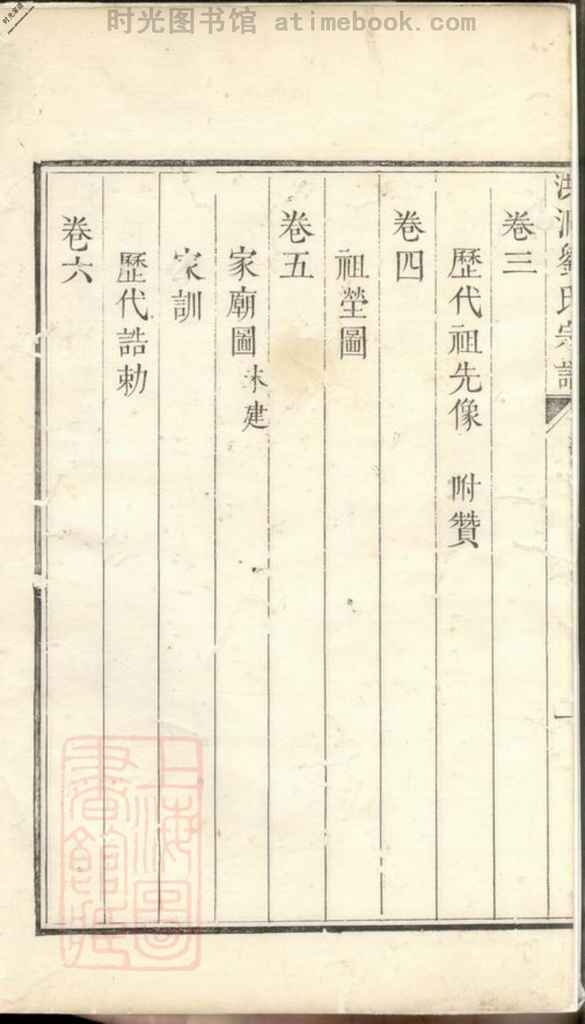 时光图书馆 atimebook.com
劉氏宗譜
一
卷三
歷代祖先像 附贊
卷四
祖塋圖
卷五
家廟圖 未建
家訓
歷代誥勅
卷六
上海圖
書館藏